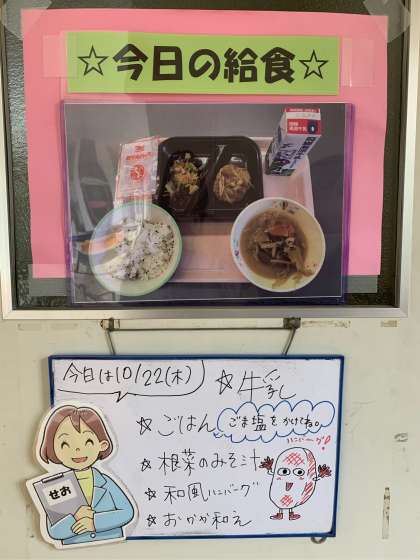 ☆今日の給食☆
今日は10/22(木)
☆牛乳
☆ごはん ごま塩をかけてね。
ハンバーグ!
☆根菜のみそ汁
☆和風ハンバーグ
☆おかか和え
せお